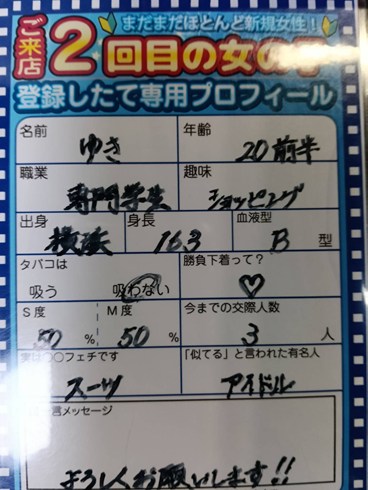 まだまだほとんど新規女性！
ご来店2回目の女の子
登録したて専用プロフィール
名前 ゆき 年齢 20前半
職業 専門学生 趣味 ショッピング
出身 横浜 身長 163 血液型 B 型
タバコは 吸う 吸わない 勝負下着って？ ♡
S度 50 % M度 50 % 今までの交際人数 3 人
実は○○フェチです スーツ 「似てる」と言われた有名人 アイドル
言メッセージ
よろしくお願いします!!